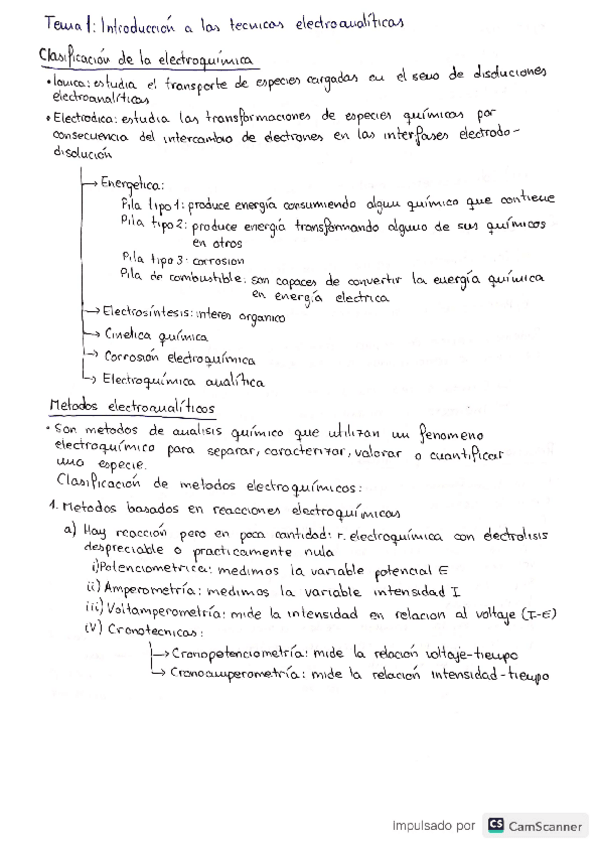 Tema 1: Introducción a las tecnicas electroanalíticas
Clasificación de la electroquímica
• Ionica: estudia el transporte de especies cargadas en el seno de disoluciones
electroanalíticas
• Electrodica: estudia las transformaciones de especies químicas por
consecuencia del intercambio de electrones en las interfases electrodo-
disolución
→ Energetica:
Pila tipo 1: produce energía consumiendo algun químico que contiene
Pila tipo 2: produce energía transformando alguno de sus químicos
en otros
Pila tipo 3: corrosion
Pila de combustible: son capaces de convertir la energía química
en energía electrica
→ Electrosíntesis: interes organico
→ Cinetica química
→ Corrosión electroquímica
→ Electroquímica analítica
Metodos electroanalíticos
• Son metodos de analisis químico que utilizan un fenomeno
electroquímico para separar, caracterizar, valorar o cuantificar
una especie.
Clasificación de metodos electroquímicos:
1. Metodos basados en reacciones electroquímicas
a) Hay reacción pero en poca cantidad: r. electroquímica con electrolisis
despreciable o practicamente nula
i) Potenciometrica: medimos la variable potencial E
ii) Amperometría: medimos la variable intensidad I
iii) Voltamperometría: mide la intensidad en relacion al voltaje (I-E)
iV) Cronotecnicas:
→ Cronopotenciometría: mide la relación voltaje-tiempo
→ Cronoamperometría: mide la relación intensidad-tiempo
Impulsado por CS CamScanner